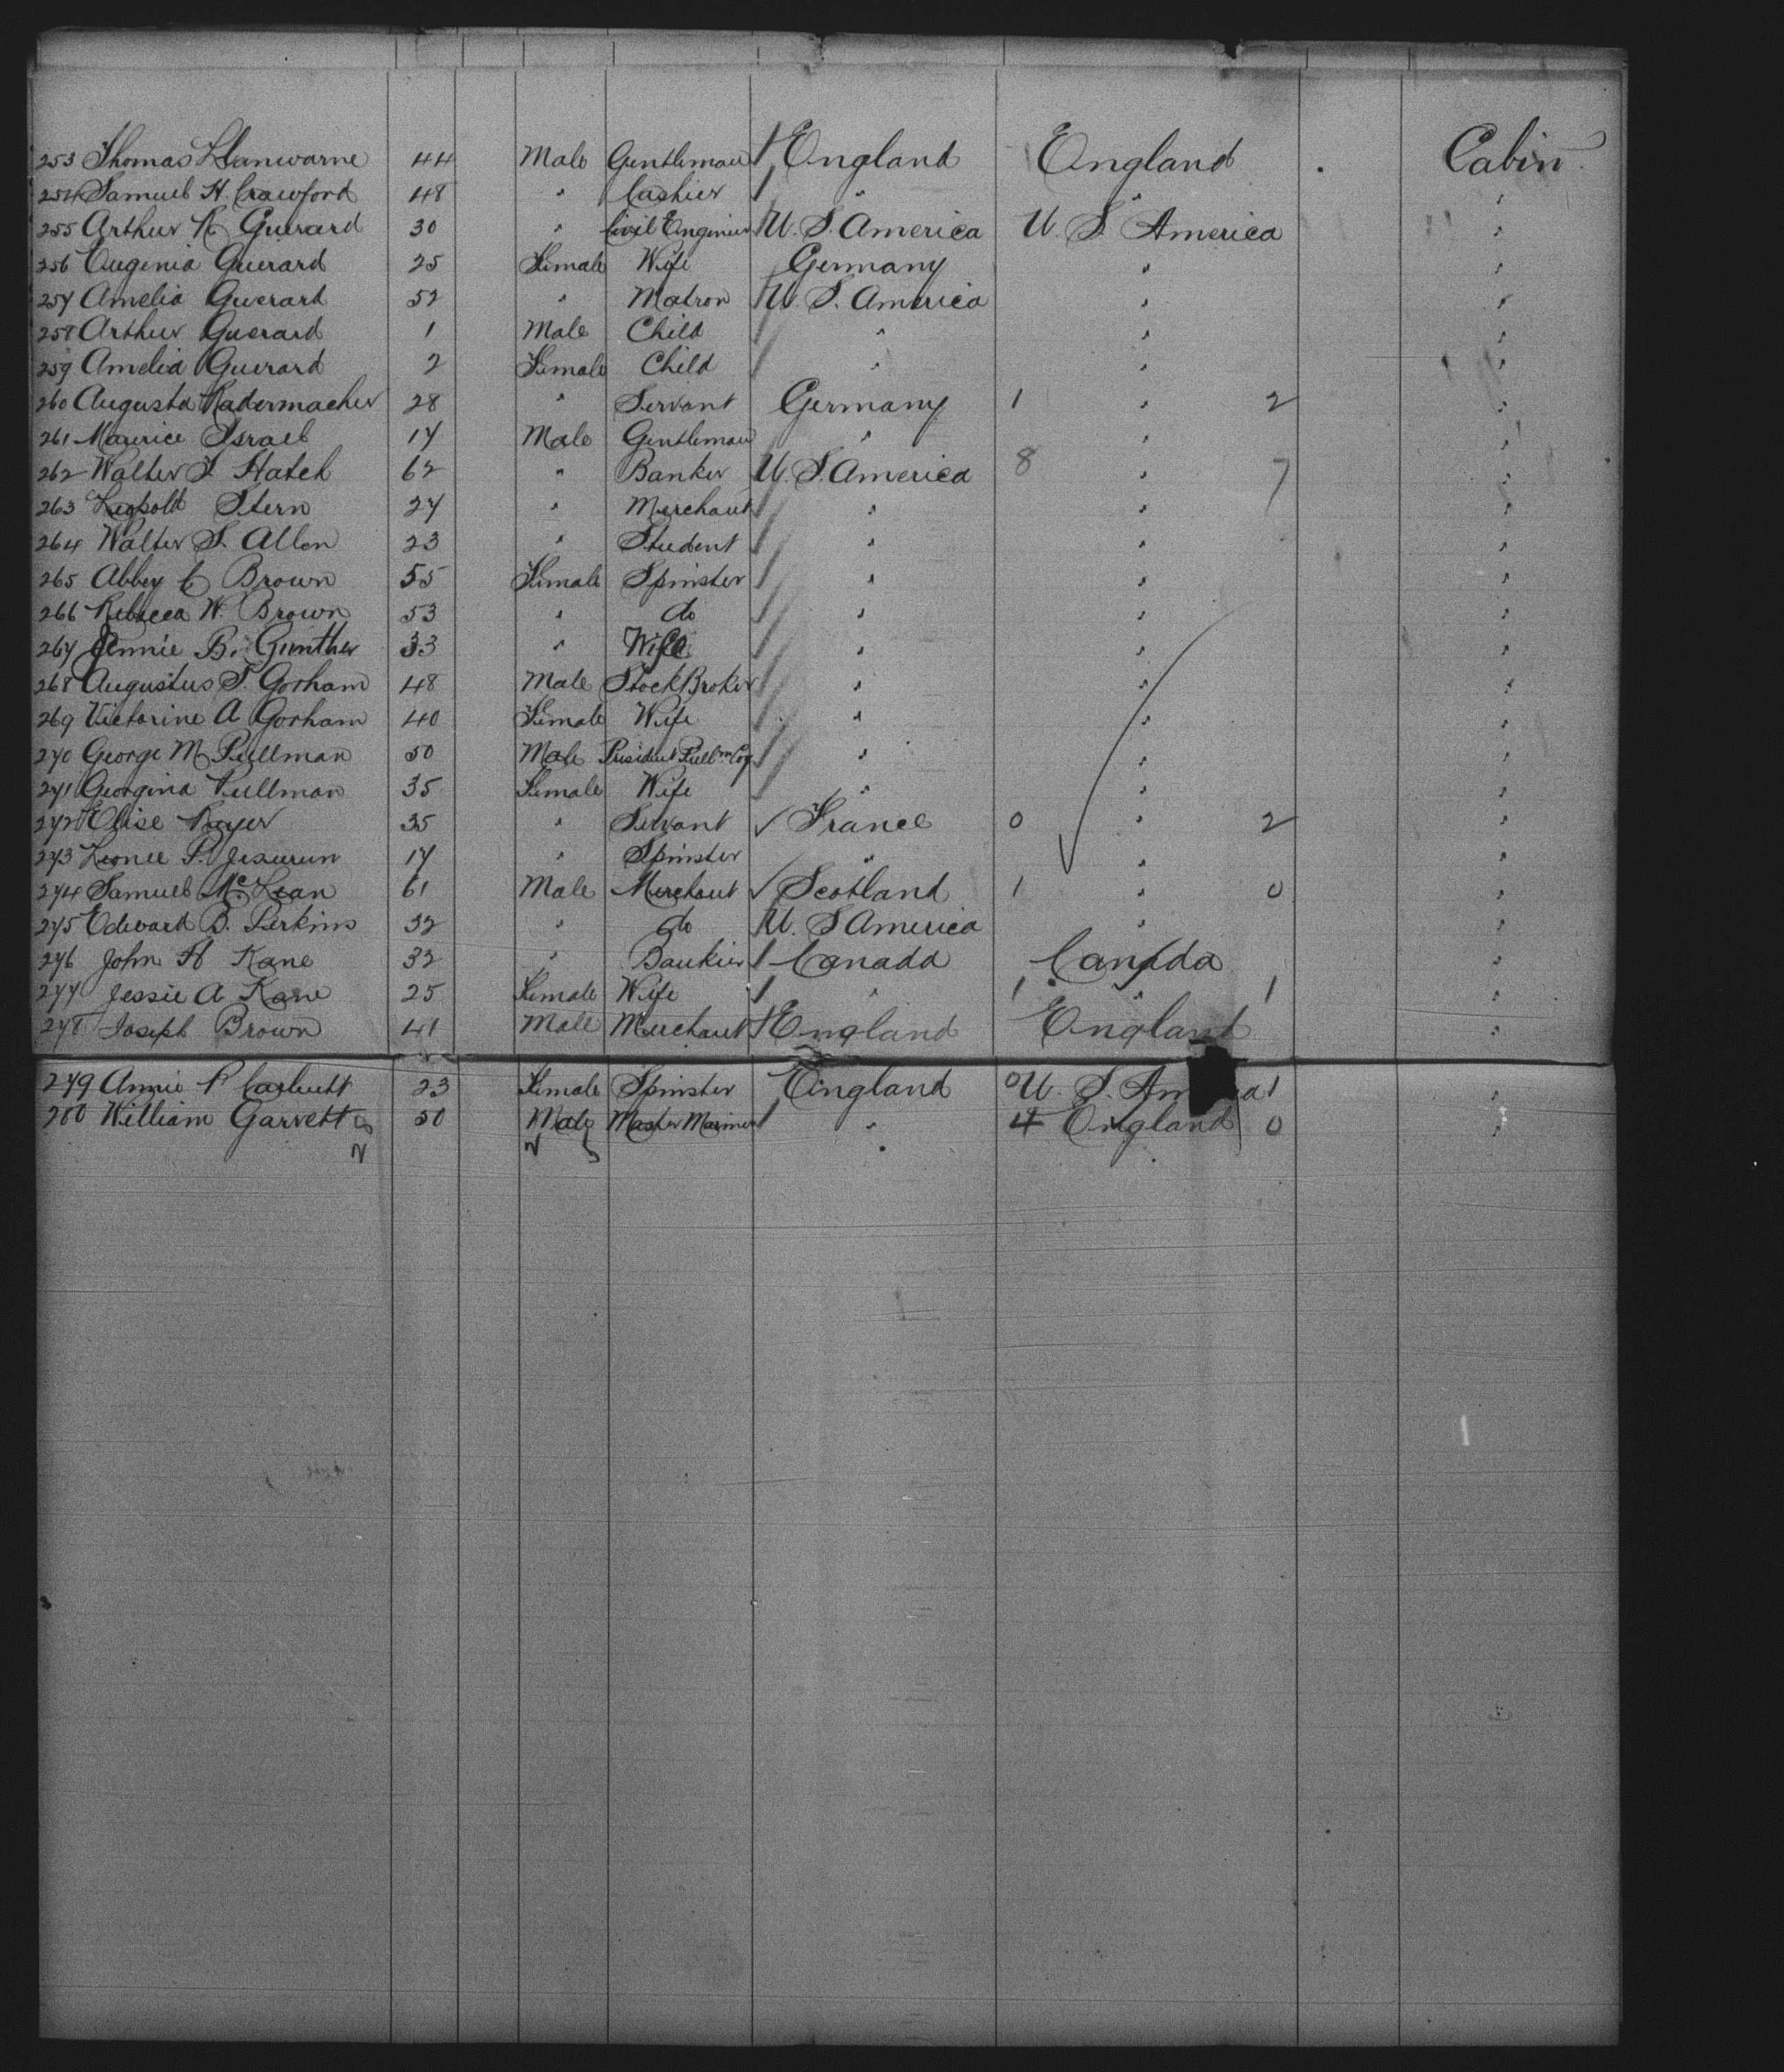 253 Thomas Llanwarne 44 Male Gentleman England England . Cabin
254 Samuel H. Crawford 48 " Cashier " " "
255 Arthur R Guerard 30 " Civil Enginier U. S. America U. S. America "
256 Eugenia Guerard 25 Female Wife Germany " "
257 Amelia Guerard 52 " Matron U. S. America " "
258 Arthur Guerard 1 Male Child " " "
259 Amelia Guerard 2 Female Child " " "
260 Augusta Radermacher 28 " Servant Germany 1 " 2 "
261 Maurice Israel 17 Male Gentleman " " "
262 Walter T. Hatch 62 " Banker U. S. America 8 " 7 "
263 Leopold Stern 27 " Merchant " " "
264 Walter S. Allen 23 " Student " " "
265 Abbey C Brown 55 Female Spinster " " "
266 Rebecca W. Brown 53 " do " " "
267 Jennie B. Gunther 33 " Wife " " "
268 Augustus S. Gorham 48 Male Stock Broker " " "
269 Victorine A Gorham 40 Female Wife " " "
270 George M Pullman 50 Male President Pullmn Coy " " "
271 Georgina Pullman 35 Female Wife " " "
272 Elise Royer 35 " Servant France 0 " 2 "
273 Leonie P. Jesurun 17 " Spinster " " "
274 Samuel McLean 61 Male Merchant Scotland 1 " 0 "
275 Edward B. Perkins 32 " do U. S America " "
276 John H Kane 32 " Bankier Canada Canada "
277 Jessie A Kane 25 Female Wife " 1 " 1 "
278 Joseph Brown 41 Male Merchant England England "
279 Annie P 23 Female Spinster England 0 U. S. Am a 1 "
280 William Garvett 50 Male Master Mariner " 4 England 0 "